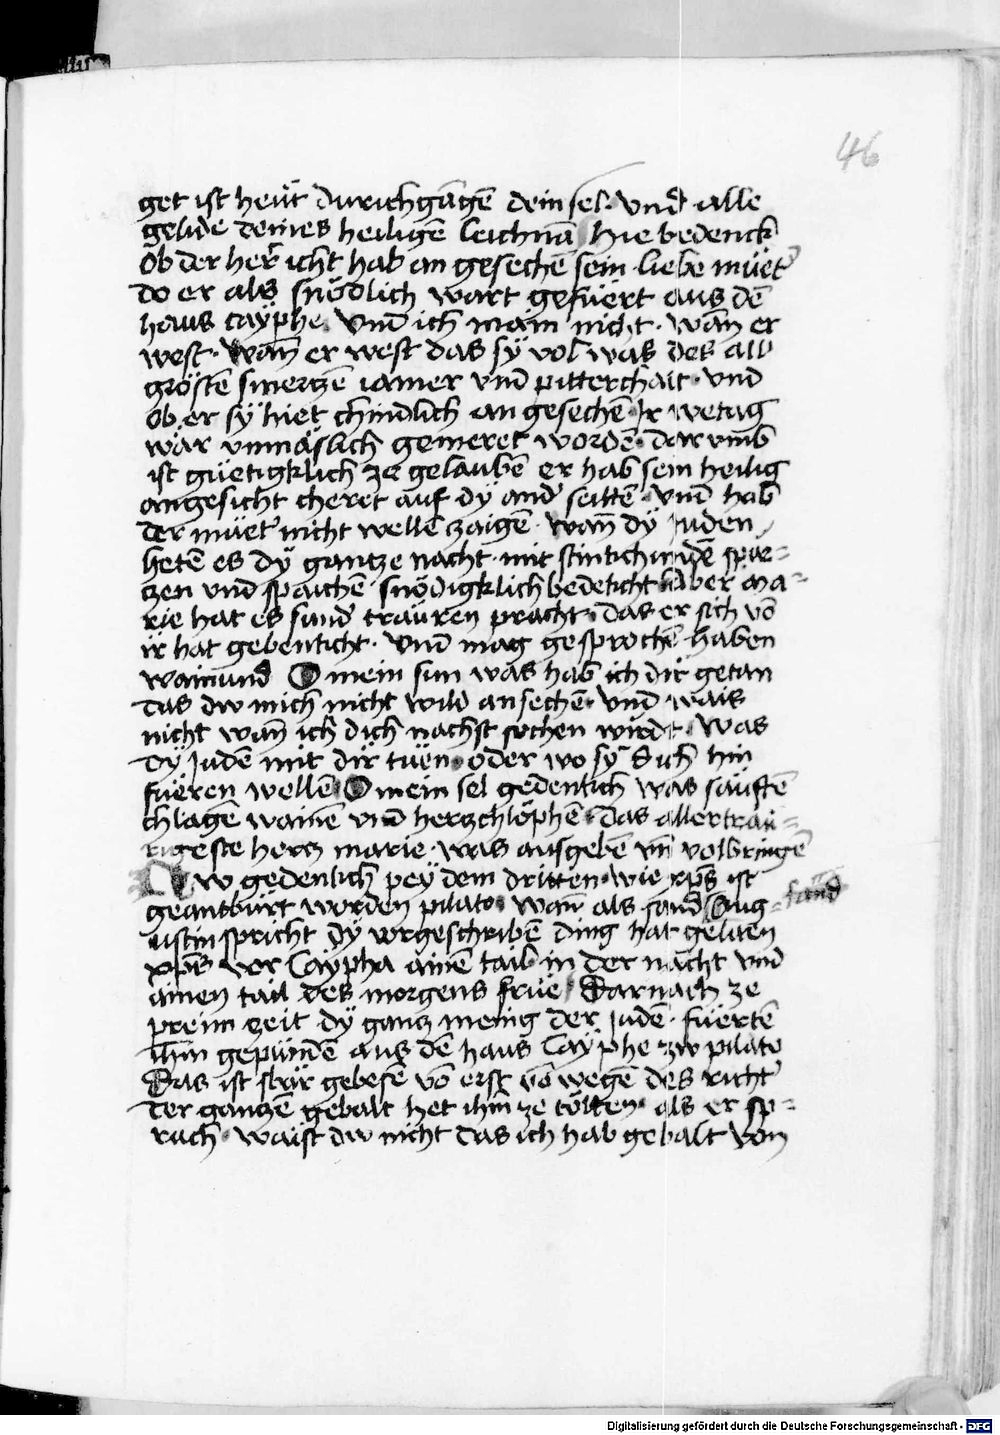 46
get ist heut durichgāgē dein sel · vnd alle
gelide deines heiligē leichnā hie bedenck
Ob der her icht hab an gesechē sein liebe müet'
do er als snödlich wart gefüert aus dē
haus cayphe · vnd ich main nicht · wān er
west · wān er west das sÿ vol was des all'
gröstē smertzē iamer vnd pitterchait · vnd
Ob er sÿ hiet chindlich an gesechē Ir wetag
wär vnmäslich gemeret wordē · dar vmb
ist güetigklich ze gelaubē er hab sein heilig
angesicht cheret auf dÿ and' seittē · vnd hab
der müet' nicht wellē zaigē · wān dÿ Juden
hetē es dÿ gantze nacht · mit stinckchundē spür=
tzen vnd spaichē snödigklich bedekcht Aber ma=
rie hat es sund' trauren pracht · das er sich vō
ir hat gebenticht · vnd mag gesprochē haben
wainund O mein sun was hab ich dir getan
das dw mich nicht wild an sechē · vnd wais
nicht wān ich dich nachst sechen wirdt · was
dÿ Judē mit dir tuen · oder wo sÿ dich hin
füeren wellē O mein sel gedenkch was säuftē
chlagē wainē vnd hertzchlöphē · das allertrau=
rigeste hertz marie · was ausgebē vn volbringē
Nw gedenkch peÿ dem drittē · wie xp̄s ist
geantburt worden pilato · wān als sand Aug= sand
ustin spricht dÿ vorgeschribē ding hat geliten
xp̄s vor Caypha ainē tail in der nacht vnd
ainen tail des morgens frue · Darnach ze
preim zeit dÿ gantz menig der Judē · fuertē
ihm gepundē aus dē haus Cayphe zw pilato
Das ist fbär gebesē vō erst vō wegē des richt'
der gantzē gebalt het ihm ze töttē · als er sp=
rach · waist dw nicht das ich hab gebalt von
Digitalisierung gefördert durch die Deutsche Forschungsgemeinschaft - DFG